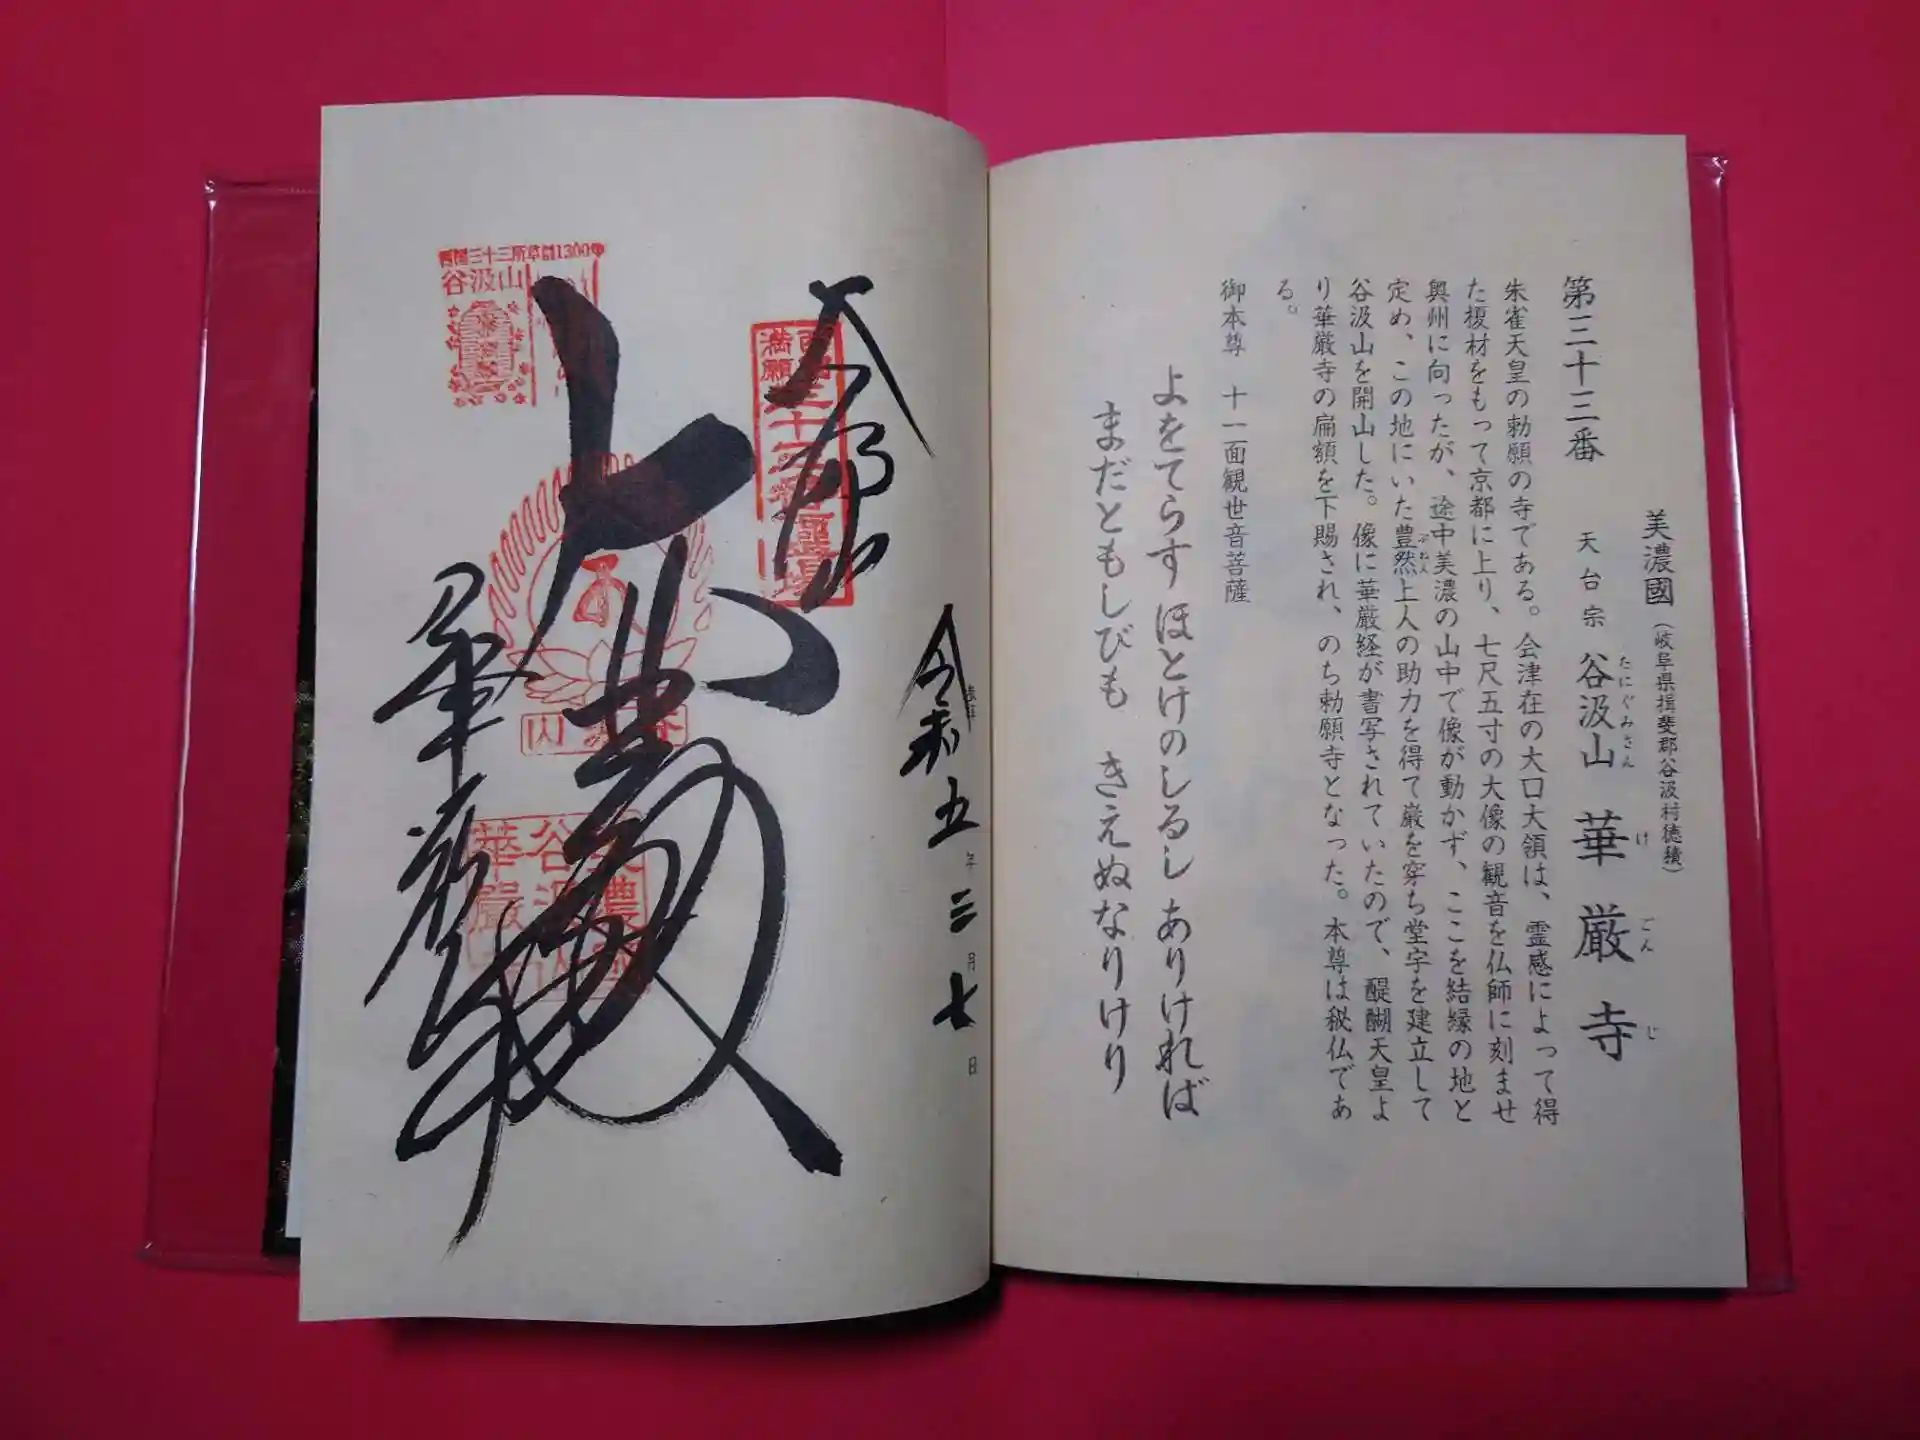 美濃國（岐阜県揖斐郡谷汲村徳積）
第三十三番　天台宗　谷汲山　華厳寺
たにぐみさん　けごんじ
朱雀天皇の勅願の寺である。会津在の大口大領は、霊感によって得
た榎材をもって京都に上り、七尺五寸の大像の観音を仏師に刻ませ
奥州に向ったが、途中美濃の山中で像が動かず、ここを結縁の地と
定め、この地にいた豊然上人の助力を得て巌を穿ち堂宇を建立して
ぶねん
谷汲山を開山した。像に華厳経が書写されていたので、醍醐天皇よ
り華厳寺の扁額を下賜され、のち勅願寺となった。本尊は秘仏であ
る。
御本尊　十一面観世音菩薩
よをてらす ほとけのしるし ありければ
まだともしびも きえぬなりけり
令和五年三月七日
奉拝
西国
満願
三十三番霊場
西国三十三所草創1300年
谷汲山
大悲
谷汲山
美濃國
谷汲山
華厳寺